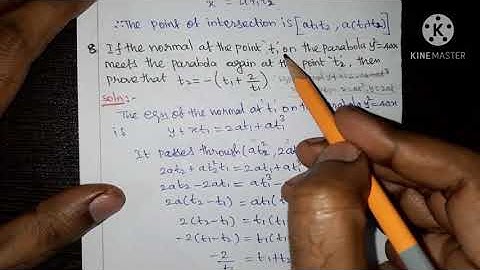 ∴The point of intersection is [at₁t₂, a(t₁+t₂)]
8. If the normal at the point 't₁' on the parabola y²=4ax
meets the parabola again at the point 't₂', then
prove that t₂ = -(t₁ + 2/t₁)
Soln:-
The eqn of the normal at 't₁' on the parabola y²=4ax
is y + xt₁ = 2at₁ + at₁³
It passes through (at₂², 2at
2at₂ + at₂²t₁ = 2at₁ + at
2at₂ - 2at₁ = at₁³ -
2a(t₂-t₁) =
2(t₂-t₁) = t₁(t
-2(t₁-t₂) = t₁(t
-2/t₁ = t₁+t₂
KINEMASTER